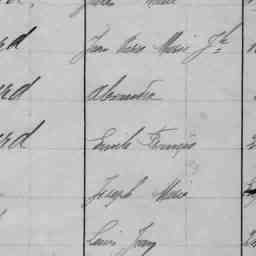 Marie
rd Jean Pierre Marie Jh
rd Alexandre
rd Emile François
Joseph Marie
Louis Jean